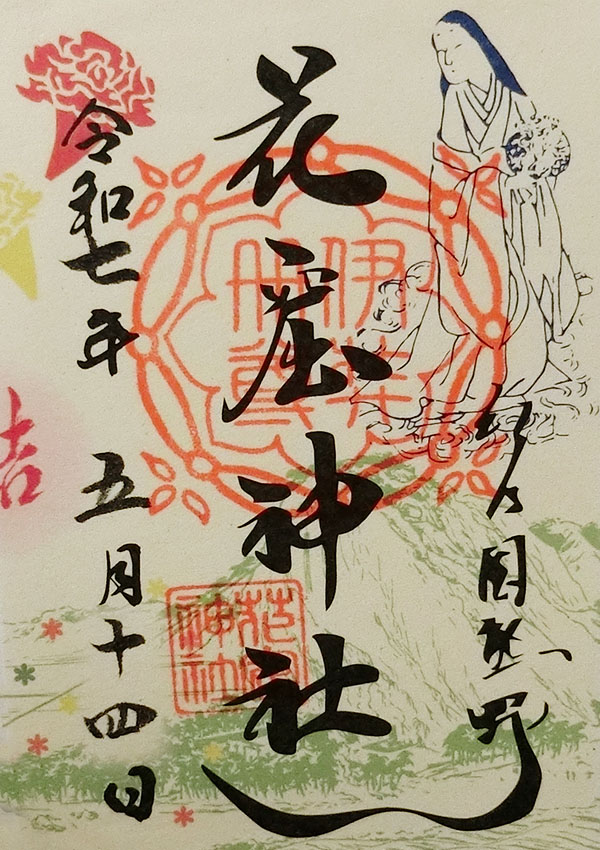 紀乃国熊野
花窟神社
伊弉
冊尊
花窟
神社
令和七年 五月十四日
吉